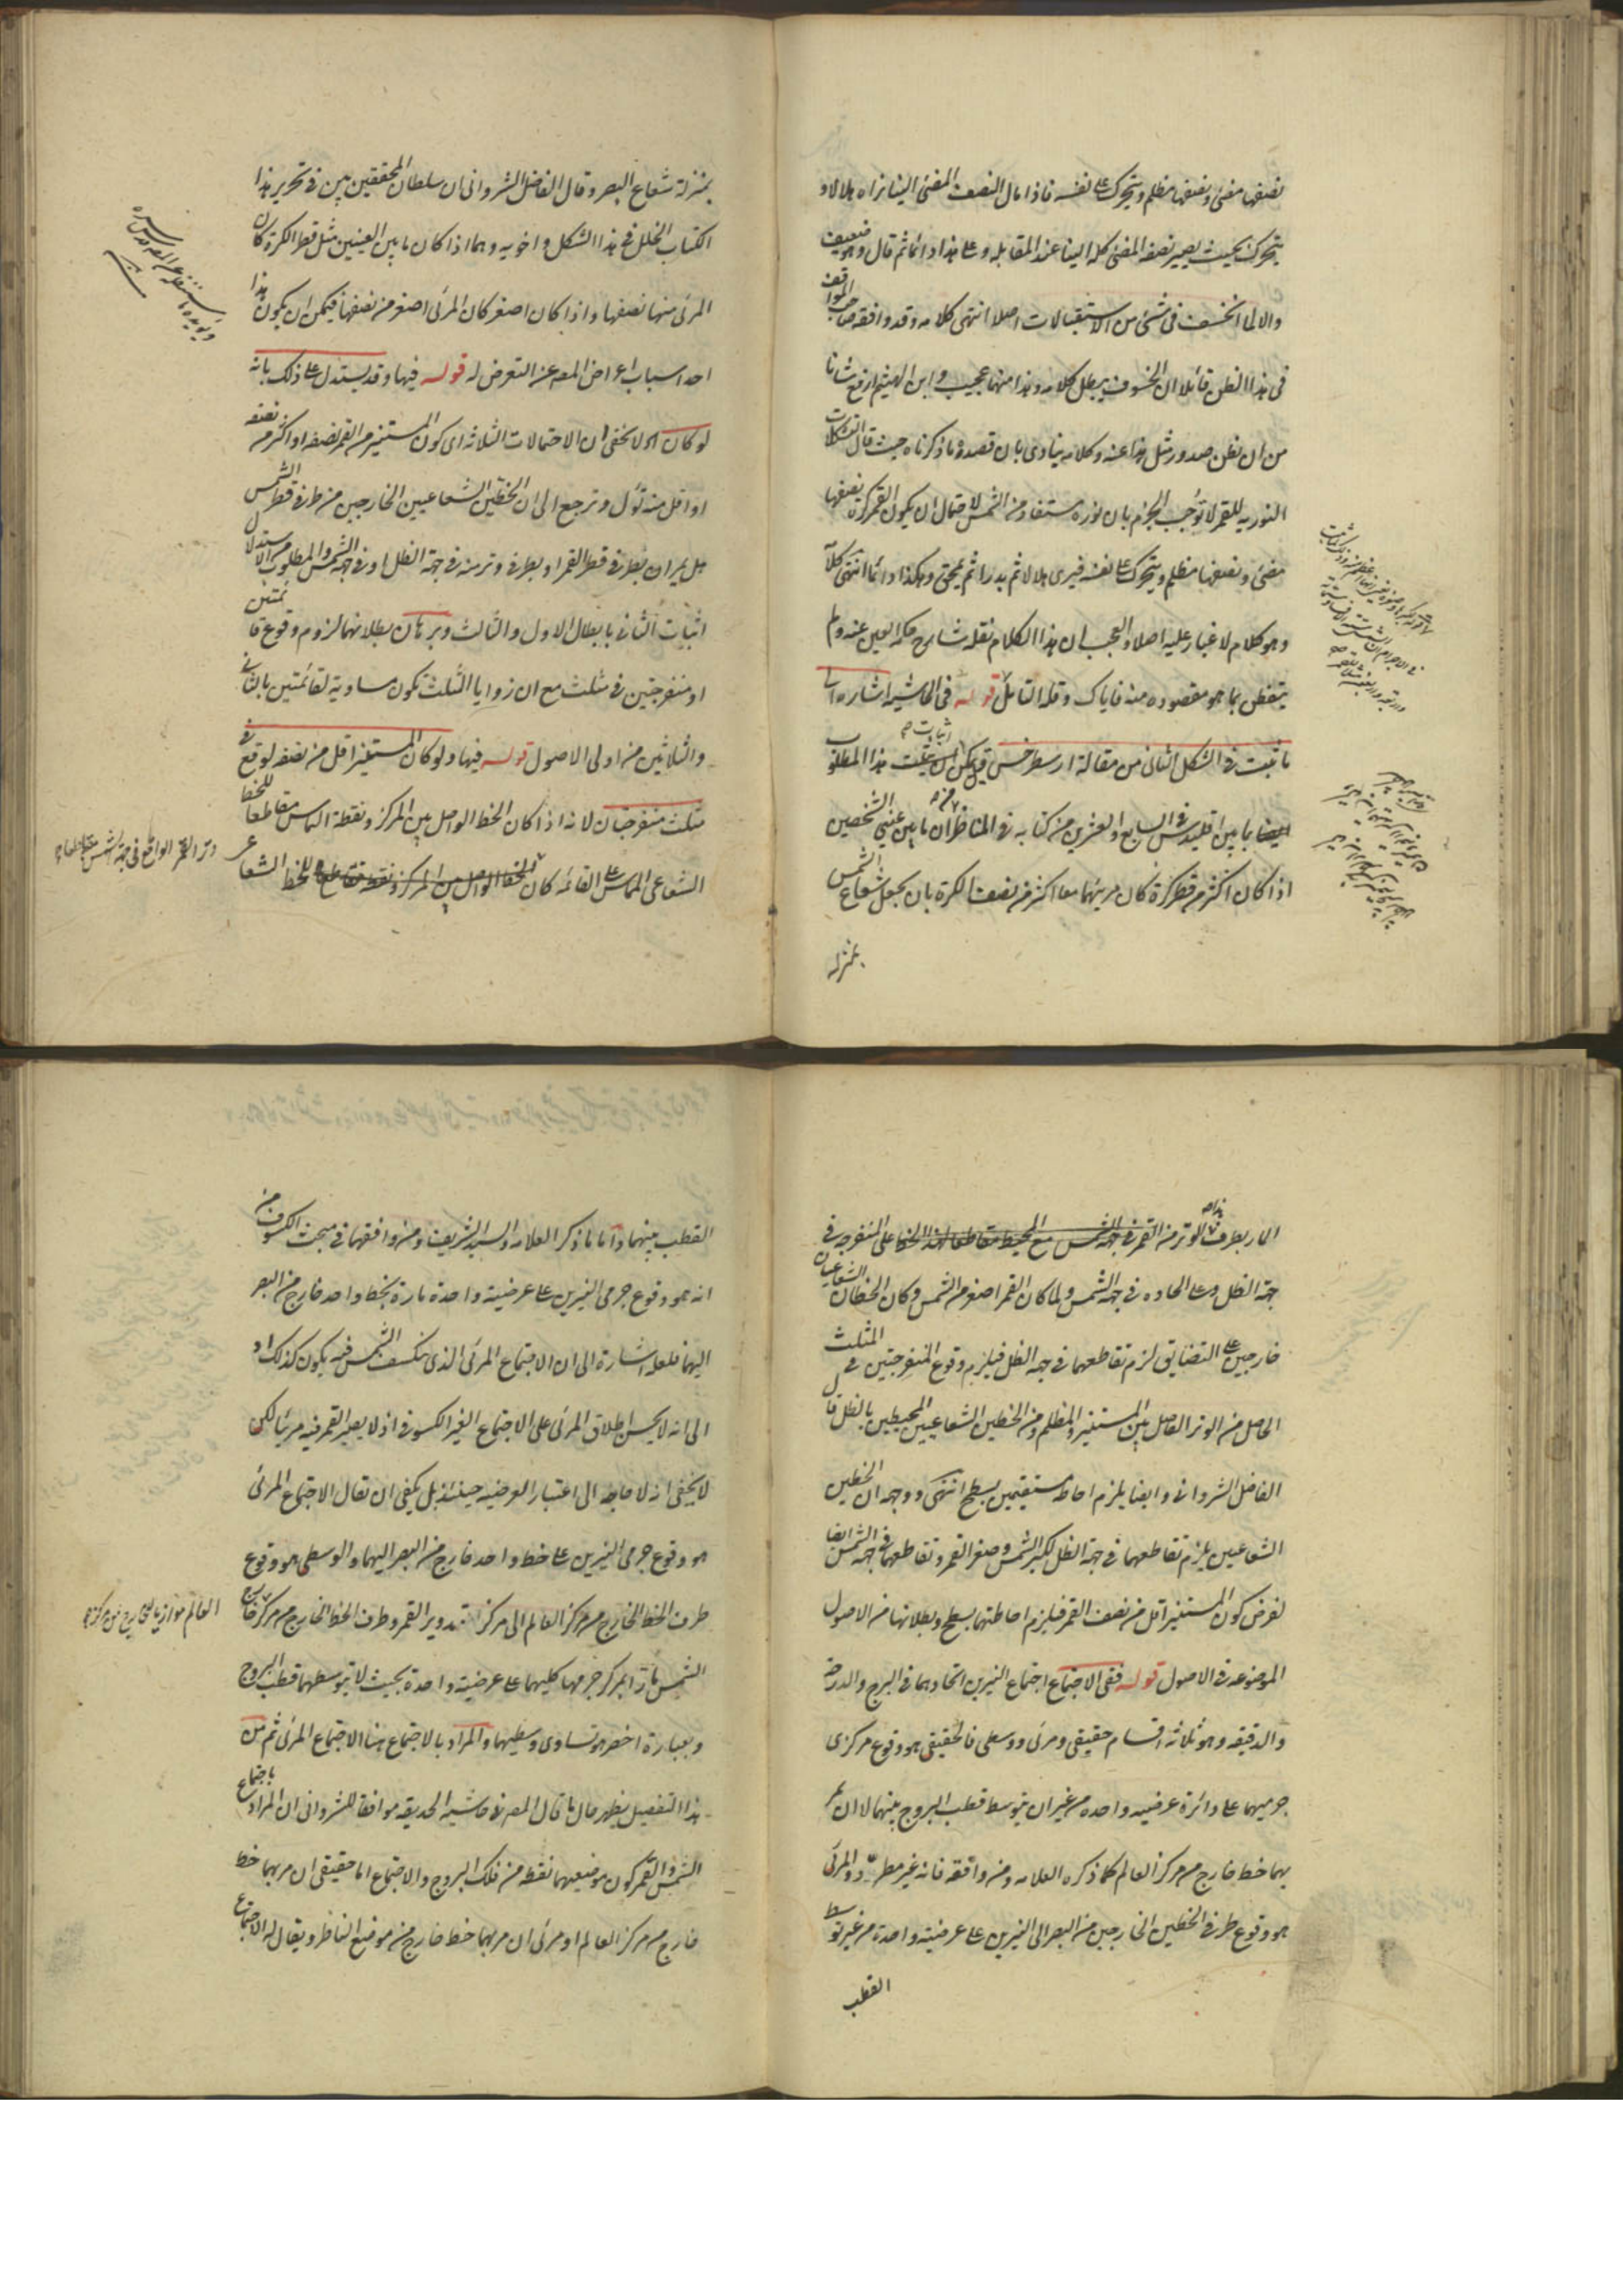 نصفها مضئ ونصفها مظلم ويتحرك على نفسه فاذا مال النصف المضئ الينا نراه هلالا و
يتحرك بحيث يصير نصفه المضئ كله الينا عند المقابله وعلى هذا دائما ثم قال وهو ضعيف
والا لما انخسف فى شئ من الاستقبالات اصلا انتهى كلامه وقد وافقه صاحب المواقف
فى هذا الظن قائلا ان الخسوف يبطل كلامه وهذا منهما عجيب وابن الهيثم ارفع شانا
من ان يظن صدور مثل هذا عنه وكلامه ينادى بان قصده ما ذكرناه حيث قال التشكلات
النوريه للقمر لا توجب الجزم بان نوره مستفاد من الشمس لاحتمال ان يكون القمر كرة نصفها
مضئ ونصفها مظلم ويتحرك على نفسه فيرى هلالا ثم بدرا ثم يمحق وهكذا دائما انتهى كلامه
وهو كلام لا غبار عليه اصلا والعجب ان هذا الكلام نقله شارح حكمه العين عنه ولم
يتفطن بما هو مقصوده منه فاياك وقلة التامل قوله فى الحاشيه اشاره الى
ما ثبت فى الشكل الثانى من مقالة ارسطرخس قد يمكن اثبات هذا المطلوب
ايضا بما بين اقليدس فى السابع والعشرين من كتابه فى المناظر من ان ما بين عينى الشخصين
اذا كان اكثر من قطر كرة كان مرئيهما معا اكثر من نصف الكرة بان يجعل شعاع الشمس
بمنزله
بمنزلة شعاع البصر وقال الفاضل الشروانى ان سلطان المحققين بين فى تحرير هذا
الكتاب الخلل فى هذا الشكل واخويه وهما اذا كان ما بين العينين مثل قطر الكرة كان
المرئى منها نصفها واذا كان اصغر كان المرئى اصغر من نصفها فيمكن ان يكون هذا
احد اسباب اعراض المصه عن التعرض له قوله فيها وقد يستدل على ذلك بانه
لو كان اه لا يخفى ان الاحتمالات الثلاثه اى كون المستنير من القمر نصفه او اكثر من نصفه
او اقل منه تؤل وترجع الى ان الخطين الشعاعيين الخارجين من طرفى قطر الشمس
هل يمران بطرفى قطر القمر او بطرفى وتر منه فى جهة الظل او فى جهة الشمس والمطلوب من الاستدلال
اثبات الثانى بابطال الاول والثالث وبرهان بطلانهما لزوم وقوع قائمتين
او منفرجتين فى مثلث مع ان زوايا المثلث تكون مساوية لقائمتين بالثانى
والثلاثين من اولى الاصول قوله فيها ولو كان المستنير اقل من نصفه لوقع فى
مثلث منفرجتان لانه اذا كان الخط الواصل بين المركز ونقطة التماس مقاطعا للخط
الشعاعى المماس على القائمه كان
وتر القمر الواقع فى جهة الشمس مقاطعا
المار بطرف الوتر على المنفرجه فى
جهة الظل وعلى الحاده فى جهة الشمس ولما كان القمر اصغر من الشمس وكان الخطان الشعاعيان
خارجين على التضايق لزم تقاطعهما فى جهة الظل فيلزم وقوع المنفرجتين فى المثلث
الحاصل من الوتر الفاصل بين المستنير والمظلم ومن الخطين الشعاعيين المحيطين بالظل قال
الفاضل الشروانى وايضا يلزم احاطه مستقيمين بسطح انتهى ووجهه ان الخطين
الشعاعيين يلزم تقاطعهما فى جهة الظل لكبر الشمس وصغر القمر وتقاطعهما فى جهة الشمس ايضا
لفرض كون المستنير اقل من نصف القمر فيلزم احاطتهما بسطح وبطلانها من الاصول
الموضوعه فى الاصول قوله ففى الاجتماع اجتماع النيرين اتحادهما فى البرج والدرجه
والدقيقه وهو ثلاثة اقسام حقيقى ومرئى ووسطى فالحقيقى هو وقوع مركزى
جرميهما على دائرة عرضيه واحده من غير ان يتوسط قطب البروج بينهما لا ان يمر
بهما خط خارج من مركز العالم كما ذكره العلامه ومن وافقه فانه غير مطرد والمرئى
هو وقوع طرفى الخطين الخارجين من البصر الى النيرين على عرضيته واحدة من غير توسط
القطب
القطب بينهما واما ما ذكر العلامه والسيد الشريف ومن وافقهما فى مبحث الكسوف من
انه هو وقوع جرمى النيرين على عرضيته واحدة مارة بخط واحد خارج من البصر
اليهما فلعله اشارة الى ان الاجتماع المرئى الذى ينكسف الشمس فيه يكون كذلك او
الى انه لا يحسن اطلاق المرئى على الاجتماع الغير الكسوفى اذ لا يصير القمر فيه مرئيا لكن
لا يخفى انه لا حاجه الى اعتبار العرضيه حينئذ بل يكفى ان يقال الاجتماع المرئى
هو وقوع جرمى النيرين على خط واحد خارج من البصر اليهما والوسطى هو وقوع
طرف الخط الخارج من مركز العالم الى مركز تدوير القمر وطرف الخط الخارج من مركز
العالم موازيا للخارج من مركز
الشمس مارا بمركز جرمها كليهما على عرضيته واحدة بحيث لا يتوسطهما قطب البروج
وبعبارة اخصر هو تساوى وسطيهما والمراد بالاجتماع هنا الاجتماع المرئى ثم من
هذا التفصيل يظهر حال ما قال المصه فى حاشيه الحديقه موافقا للشروانى ان المراد باجتماع
الشمس والقمر كون موضعيهما نقطه من فلك البروج والاجتماع اما حقيقى ان مر بهما خط
خارج من مركز العالم او مرئى ان مر بهما خط خارج من موضع الناظر ويقال له الاجتماع